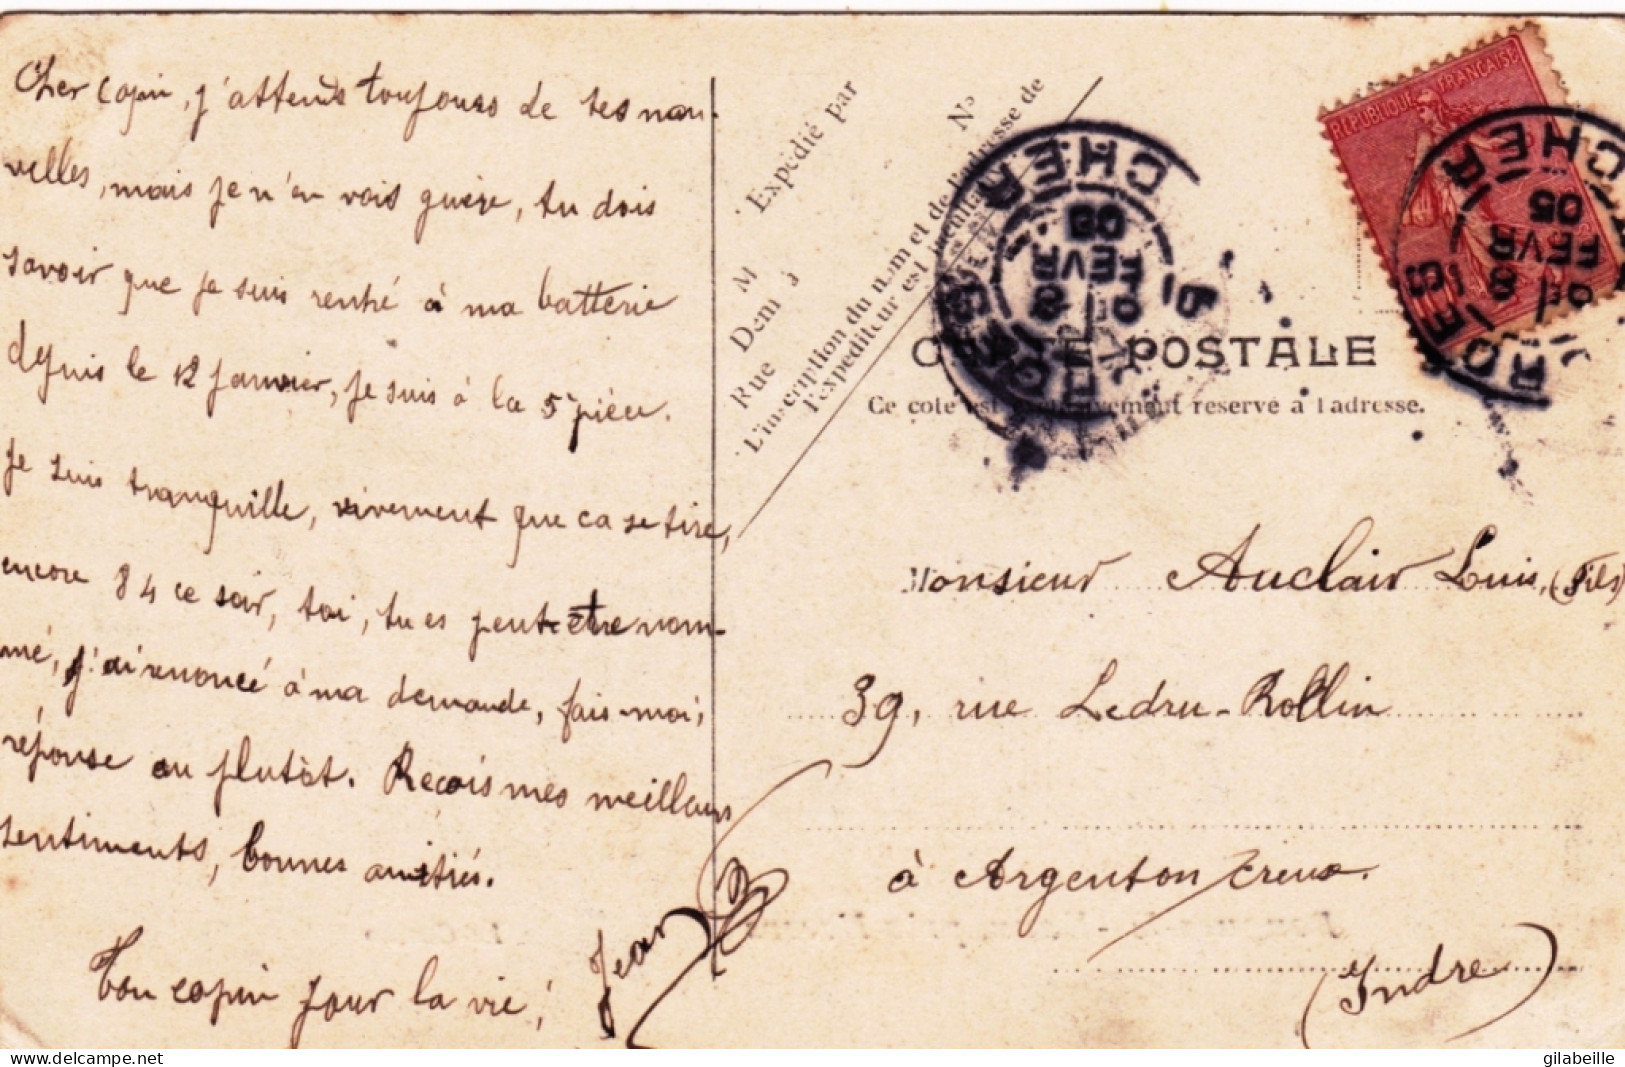 Cher Copin, j'attends toujours de tes nou-
velles, mais je n'en vois guère, tu dois
savoir que je suis rentré à ma batterie
depuis le 12 janvier, je suis à la 5e pièce.
Je suis tranquille, vivement que ca se tire,
encore 84 ce soir, toi, tu es peut être nom-
mé, j'ai renoncé à ma demande, fais-moi,
réponse au plutôt. Reçois mes meilleurs
sentiments, bonnes amitiés.
Ton copin pour la vie,
Jean
M
Expédié par
Dem à
Rue
No
L'inscription du nom et de l'adresse de
l'expéditeur est facultative
CARTE POSTALE
Ce côté est exclusivement réservé à l'adresse.
REPUBLIQUE FRANÇAISE
BOURGES CHER
8
FEVR
05
BOURGES CHER
8
FEVR
05
Monsieur Auclair Louis, (Fils)
39, rue Ledru-Rollin
à Argenton s/Creuse.
(Indre)
www.delcampe.net
gilabeille